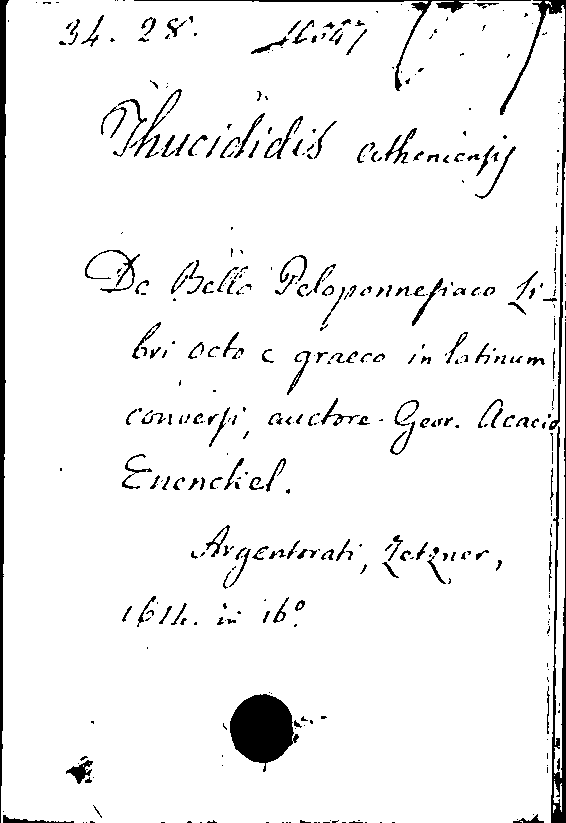 34. 28.
Thucididis atheniensis
De Bello Peloponnesiaco Li-
bri octo e graeco in latinum
conversi, auctore Geor. Acacio
Enenckel.
Argentorati, Zetzner,
1614. in 16º